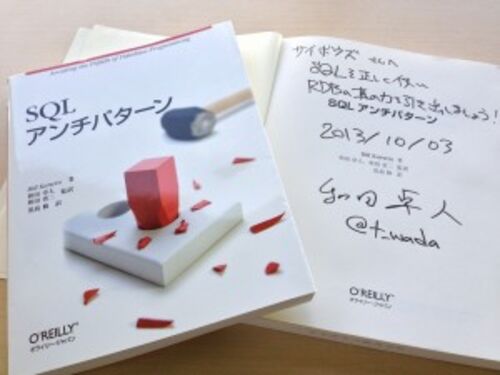 Avoiding the Pitfalls of Database Programming
SQL
アンチパターン
Bill Karwin 著
和田 卓人、和田 省二 監訳
児島 修 訳
O'REILLY
オライリー・ジャパン
サイボウズ さんへ
SQLを正しく使い
RDBの真の力を引き出しましょう!
SQL アンチパターン
2013/10/03
Bill Karwin 著
和田 卓人、和田 省二 監訳
児島 修 訳
和田 卓人
@t_wada
O'REILLY
オライリー・ジャパン